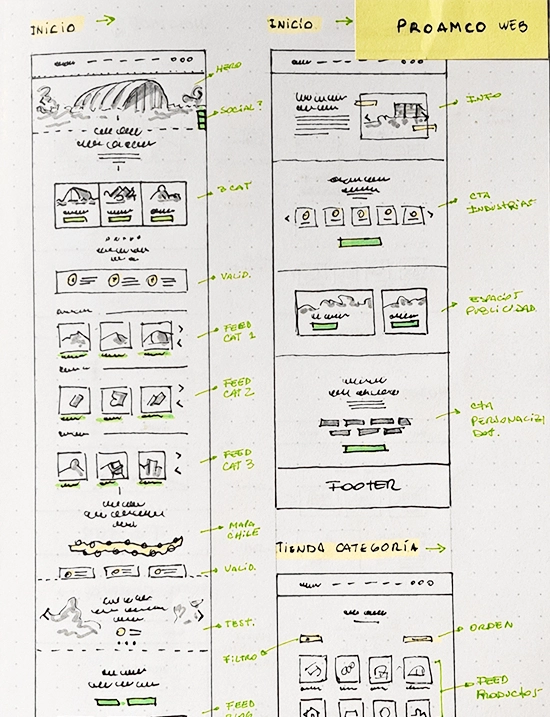 INICIO
HERO
SOCIAL?
3 CAT
VALID.
FEED
CAT 1
FEED
CAT 2
FEED
CAT 3
MAPA
CHILE
VALID.
TEST.
FEED
BLOG
INICIO
PROAMCO WEB
INFO
CTA
INDUSTRIAS
ESPACIOS
PUBLICIDAD.
CTA
PERSONALIZA
DOS.
FOOTER
TIENDA CATEGORÍA
FILTRO
ORDEN
FEED
PRODUCTOS